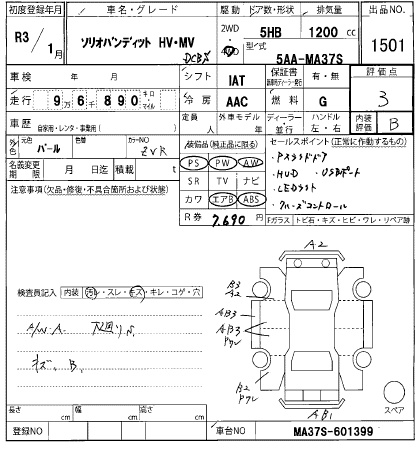 初度登録年月 車名・グレード 駆動 ドア数・形状 排気量 出品NO.
R3/1月 ソリオバンディット HV・MV 2WD 4WD 5HB 1200cc 1501
型式 5AA-MA37S
車検 年 月 シフト IAT 保証書 有・無 評価点
走行 9万6千890 キロ マイル 冷房 AAC 燃料 G 3
車歴 自家用・レンタ・事業用( ) 定員 人 外車モデル 年 ディーラー・並行 ハンドル 左・右 内装評価 B
外色 元色 パール 色替 カラーNO ZVR 装備品(純正品に限る) セールスポイント(正常に作動するもの)
PS PW AW
・HUD ・USBポート
名義変更期限 月 日迄 積載 t SR TV ナビ
・LEDライト
注意事項(欠品・修復・不具合箇所および状態) カワ エアB ABS
・クルーズコントロール
R券 7,690 円 Fガラス トビ石・キズ・ヒビ・ワレ・リペア跡
A2
検査員記入 内装 汚レ・スレ・キズ・キレ・コゲ・穴
B3
A2
AB3
AB3
A/W.A 下廻りS
キズ、B.
B2
AB1
スペア
長さ cm 幅 cm 高さ cm
登録NO 車台NO MA37S-601399